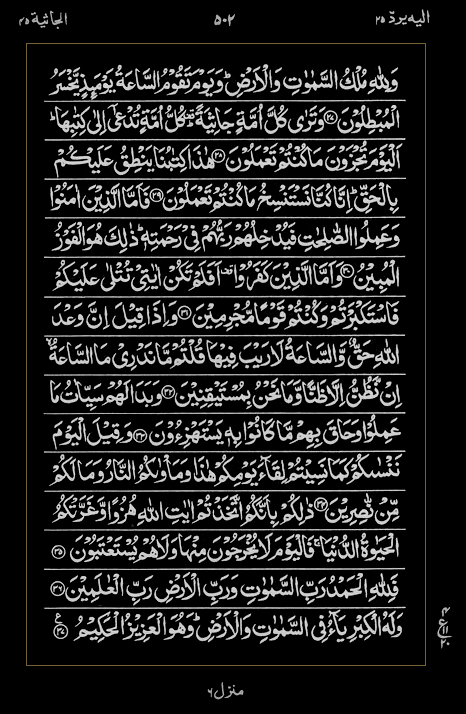 الیه یردّ ۲۵ ۵۰۲ الجاثیة ۴۵
وَلِلّٰهِ مُلْكُ السَّمٰوٰتِ وَالْاَرْضِ ؕ وَیَوْمَ تَقُوْمُ السَّاعَةُ یَوْمَىِٕذٍ یَّخْسَرُ
الْمُبْطِلُوْنَ ﴿۲۷﴾ وَتَرٰی كُلَّ اُمَّةٍ جَاثِیَةً ۫ كُلُّ اُمَّةٍ تُدْعٰۤی اِلٰی كِتٰبِهَا ؕ
اَلْیَوْمَ تُجْزَوْنَ مَا كُنْتُمْ تَعْمَلُوْنَ ﴿۲۸﴾ هٰذَا كِتٰبُنَا یَنْطِقُ عَلَیْكُمْ
بِالْحَقِّ ؕ اِنَّا كُنَّا نَسْتَنْسِخُ مَا كُنْتُمْ تَعْمَلُوْنَ ﴿۲۹﴾ فَاَمَّا الَّذِیْنَ اٰمَنُوْا
وَعَمِلُوا الصّٰلِحٰتِ فَیُدْخِلُهُمْ رَبُّهُمْ فِیْ رَحْمَتِهٖ ؕ ذٰلِكَ هُوَ الْفَوْزُ
الْمُبِیْنُ ﴿۳۰﴾ وَاَمَّا الَّذِیْنَ كَفَرُوْا ۫ اَفَلَمْ تَكُنْ اٰیٰتِیْ تُتْلٰی عَلَیْكُمْ
فَاسْتَكْبَرْتُمْ وَكُنْتُمْ قَوْمًا مُّجْرِمِیْنَ ﴿۳۱﴾ وَاِذَا قِیْلَ اِنَّ وَعْدَ
اللّٰهِ حَقٌّ وَّالسَّاعَةُ لَا رَیْبَ فِیْهَا قُلْتُمْ مَّا نَدْرِیْ مَا السَّاعَةُ ۙ
اِنْ نَّظُنُّ اِلَّا ظَنًّا وَّمَا نَحْنُ بِمُسْتَیْقِنِیْنَ ﴿۳۲﴾ وَبَدَا لَهُمْ سَیِّاٰتُ مَا
عَمِلُوْا وَحَاقَ بِهِمْ مَّا كَانُوْا بِهٖ یَسْتَهْزِءُوْنَ ﴿۳۳﴾ وَقِیْلَ الْیَوْمَ
نَنْسٰىكُمْ كَمَا نَسِیْتُمْ لِقَآءَ یَوْمِكُمْ هٰذَا وَمَاْوٰىكُمُ النَّارُ وَمَا لَكُمْ
مِّنْ نّٰصِرِیْنَ ﴿۳۴﴾ ذٰلِكُمْ بِاَنَّكُمُ اتَّخَذْتُمْ اٰیٰتِ اللّٰهِ هُزُوًا وَّغَرَّتْكُمُ
الْحَیٰوةُ الدُّنْیَا ۚ فَالْیَوْمَ لَا یُخْرَجُوْنَ مِنْهَا وَلَا هُمْ یُسْتَعْتَبُوْنَ ﴿۳۵﴾
فَلِلّٰهِ الْحَمْدُ رَبِّ السَّمٰوٰتِ وَرَبِّ الْاَرْضِ رَبِّ الْعٰلَمِیْنَ ﴿۳۶﴾
وَلَهُ الْكِبْرِیَآءُ فِی السَّمٰوٰتِ وَالْاَرْضِ ۪ وَهُوَ الْعَزِیْزُ الْحَكِیْمُ ﴿۳۷﴾ ع
۴
ع ۱۱
۲۰
منزل ۶